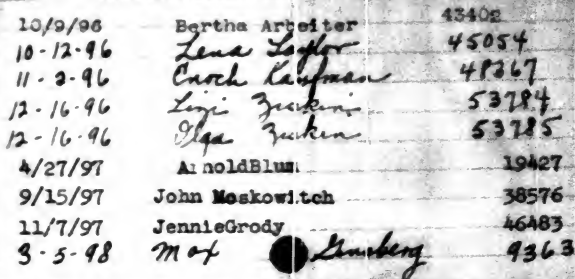 10/9/96 Bertha Arbeiter 43402
10-12-96 Lena Taylor 45054
11-2-96 Enoch Kaufman 48367
12-16-96 Lizi Zuckin 53784
12-16-96 Olga Zucken 53785
4/27/97 ArnoldBlum 19427
9/15/97 John Moskowitch 38576
11/7/97 JennieGrody 46483
3-5-98 Max Ginsberg 9363